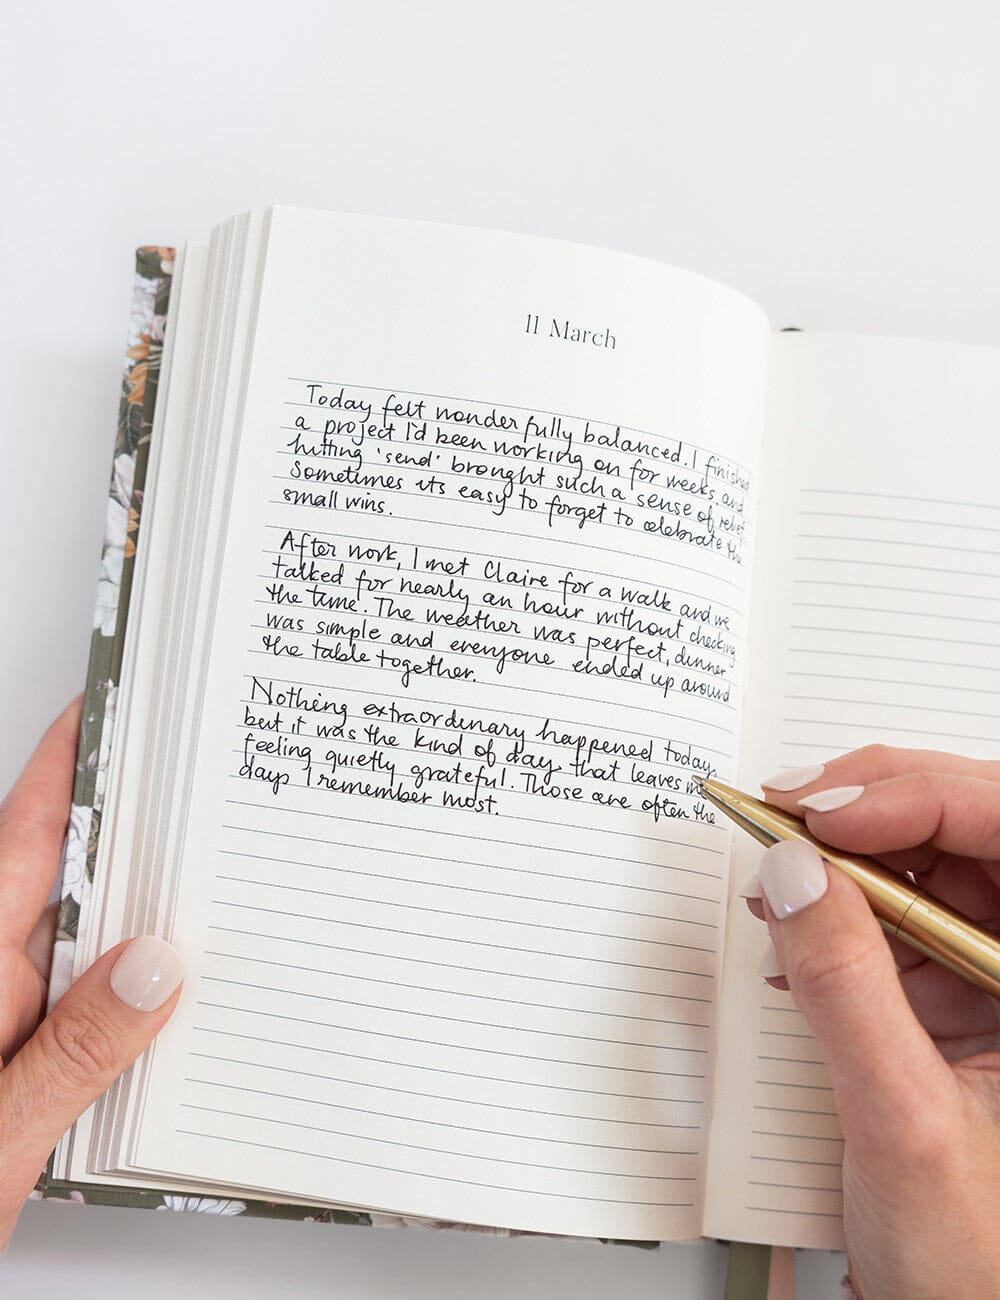 11 March
Today felt wonderfully balanced. I finished
a project I'd been working on for weeks and
hitting 'send' brought such a sense of relief
Sometimes its easy to forget to celebrate the
small wins.
After work, I met Claire for a walk and we
talked for nearly an hour without checking
the time. The weather was perfect, dinner
was simple and everyone ended up around
the table together.
Nothing extraordinary happened today,
but it was the kind of day that leaves me
feeling quietly grateful. Those are often the
days I remember most.